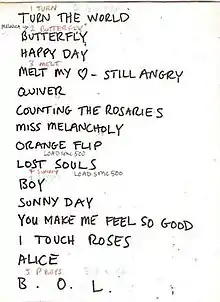 1 TURN
TURN THE WORLD
2 BUTTERFLY
BUTTERFLY
HAPPY DAY
3 MELT
MELT MY ♡ - STILL ANGRY
QUIVER
COUNTING THE ROSARIES
MISS MELANCHOLY
ORANGE FLIP
LOAD SMC 500
LOST SOULS
4 SUNNY
LOAD SMC 500
BOY
SUNNY DAY
YOU MAKE ME FEEL SO GOOD
I TOUCH ROSES
ALICE
5 P BOYS
B. O. L.